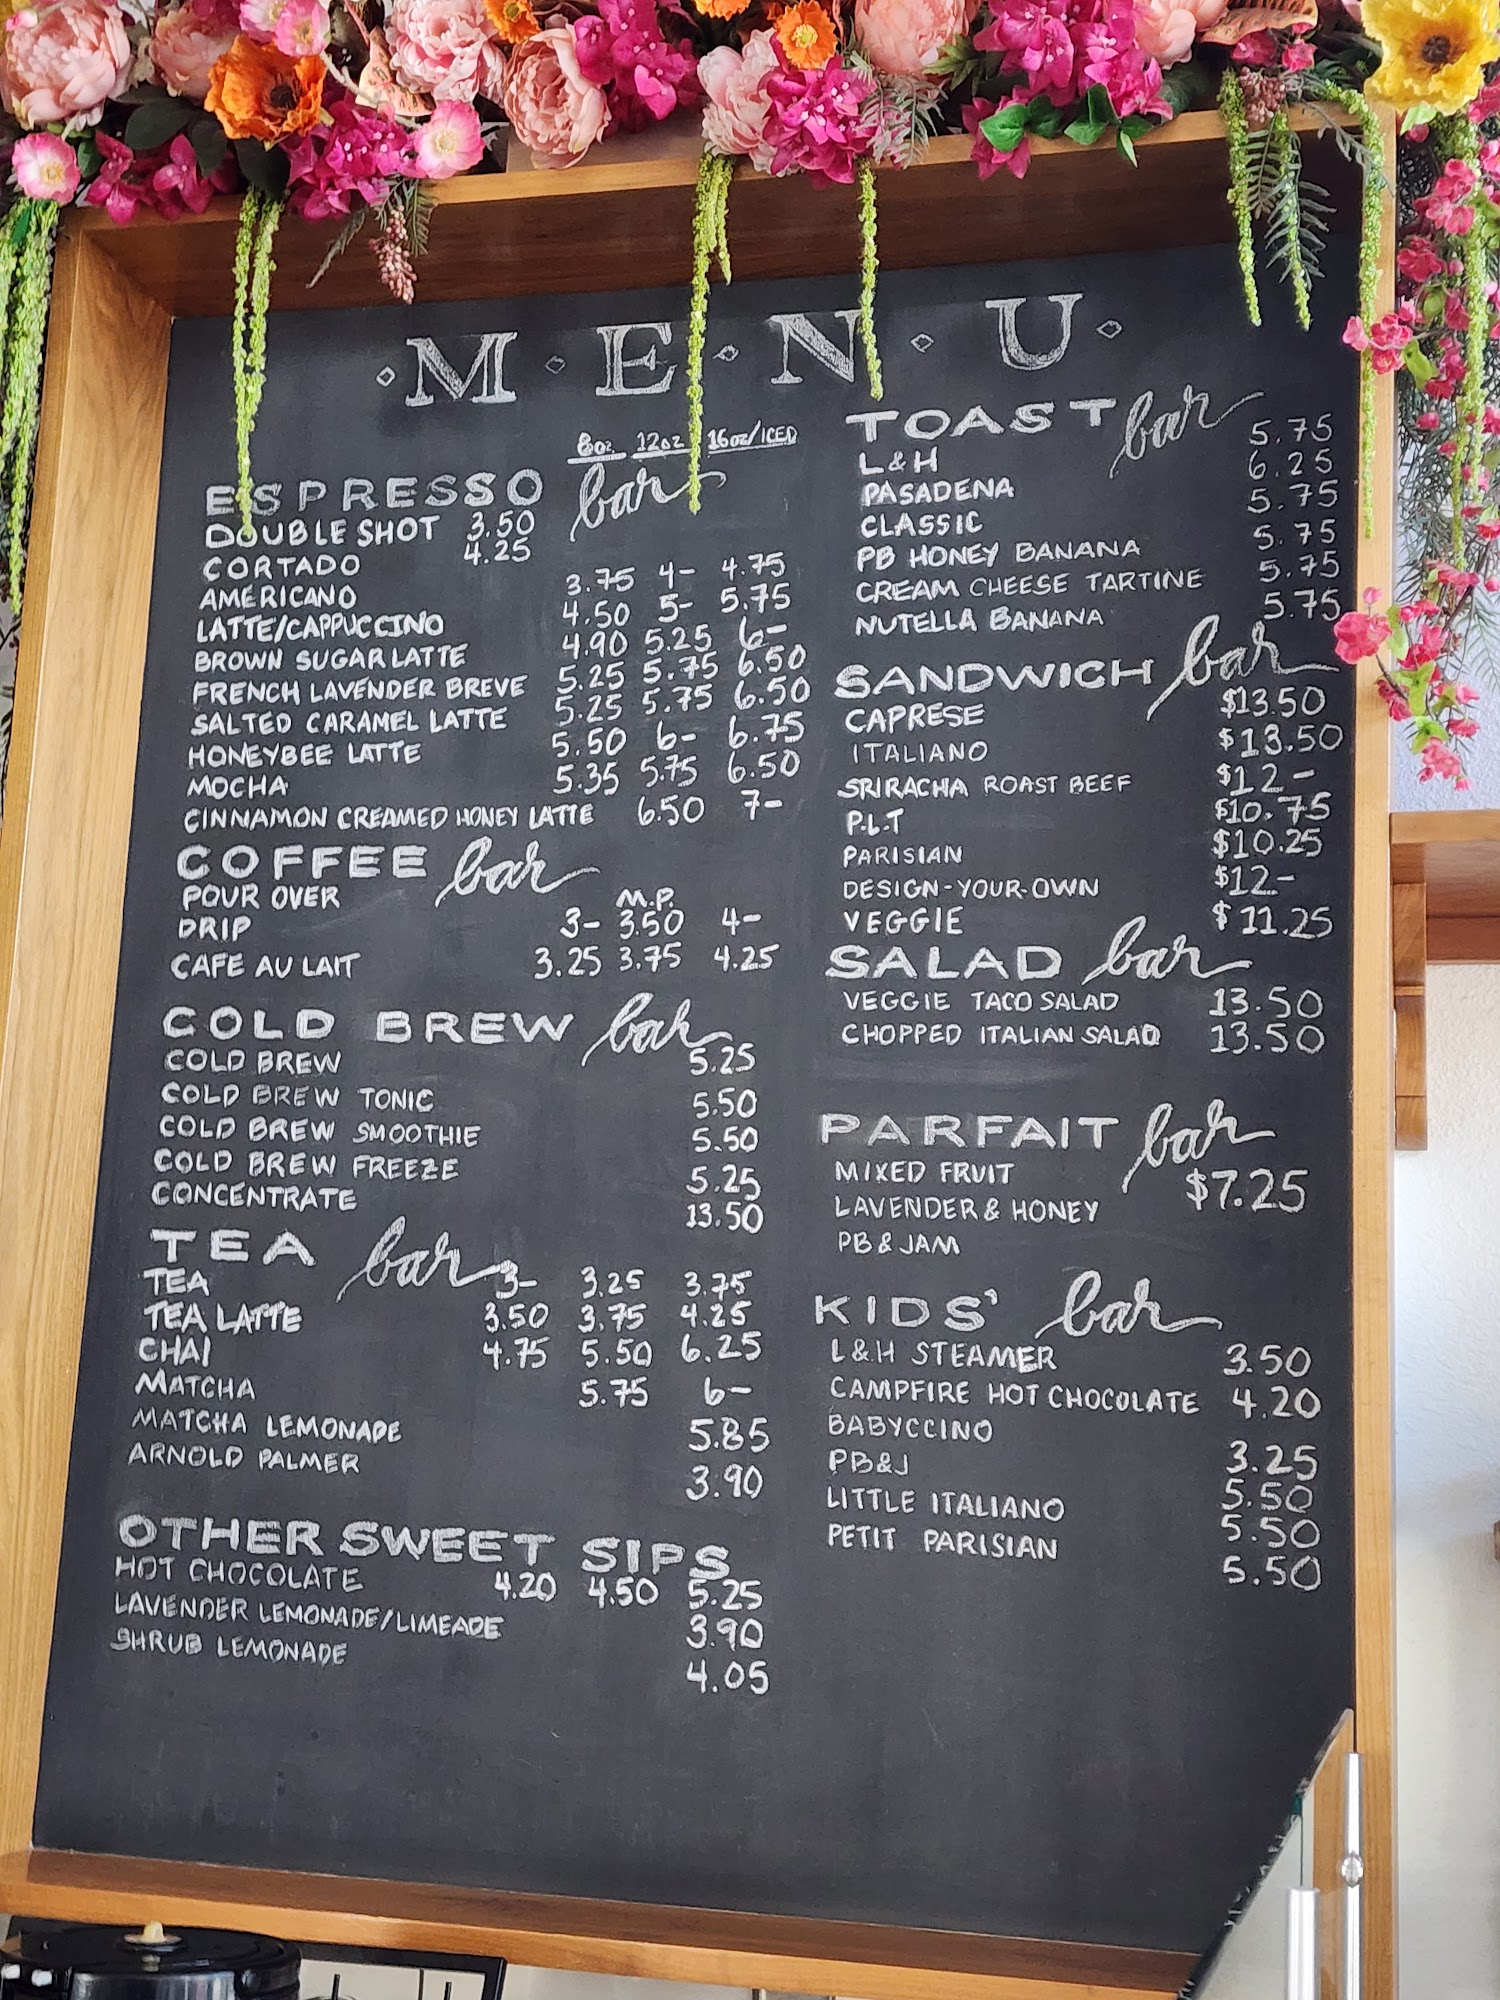 MENU
8oz 12oz 16oz/ICED
ESPRESSO bar
DOUBLE SHOT 3.50
CORTADO 4.25
AMERICANO 3.75 4- 4.75
LATTE/CAPPUCCINO 4.50 5- 5.75
BROWN SUGAR LATTE 4.90 5.25 6-
FRENCH LAVENDER BREVE 5.25 5.75 6.50
SALTED CARAMEL LATTE 5.25 5.75 6.50
HONEYBEE LATTE 5.50 6- 6.75
MOCHA 5.35 5.75 6.50
CINNAMON CREAMED HONEY LATTE 6.50 7-
COFFEE bar
POUR OVER M.P.
DRIP 3- 3.50 4-
CAFE AU LAIT 3.25 3.75 4.25
COLD BREW bar
COLD BREW 5.25
COLD BREW TONIC 5.50
COLD BREW SMOOTHIE 5.50
COLD BREW FREEZE 5.25
CONCENTRATE 13.50
TEA bar
TEA 3- 3.25 3.75
TEA LATTE 3.50 3.75 4.25
CHAI 4.75 5.50 6.25
MATCHA 5.75 6-
MATCHA LEMONADE 5.85
ARNOLD PALMER 3.90
OTHER SWEET SIPS
HOT CHOCOLATE 4.20 4.50 5.25
LAVENDER LEMONADE/LIMEADE 3.90
SHRUB LEMONADE 4.05
TOAST bar
L&H 5.75
PASADENA 6.25
CLASSIC 5.75
PB HONEY BANANA 5.75
CREAM CHEESE TARTINE 5.75
NUTELLA BANANA 5.75
SANDWICH bar
CAPRESE $13.50
ITALIANO $13.50
SRIRACHA ROAST BEEF $12-
P.L.T $10.75
PARISIAN $10.25
DESIGN-YOUR-OWN $12-
VEGGIE $11.25
SALAD bar
VEGGIE TACO SALAD 13.50
CHOPPED ITALIAN SALAD 13.50
PARFAIT bar
MIXED FRUIT
LAVENDER & HONEY $7.25
PB & JAM
KIDS' bar
L&H STEAMER 3.50
CAMPFIRE HOT CHOCOLATE 4.20
BABYCCINO 3.25
PB&J 5.50
LITTLE ITALIANO 5.50
PETIT PARISIAN 5.50